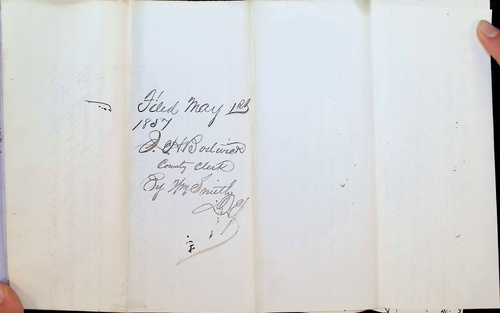 Filed May 1st
1857
Bostwick
County Clerk
By Wm Smith